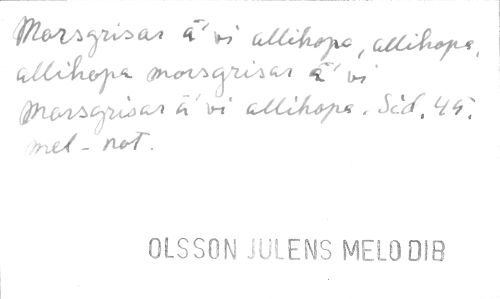 Morsgrisar ä' vi allihopa, allihopa,
allihopa morsgrisar ä' vi
Morsgrisar ä' vi allihopa. Sid. 45.
mel-not.
OLSSON JULENS MELODIB